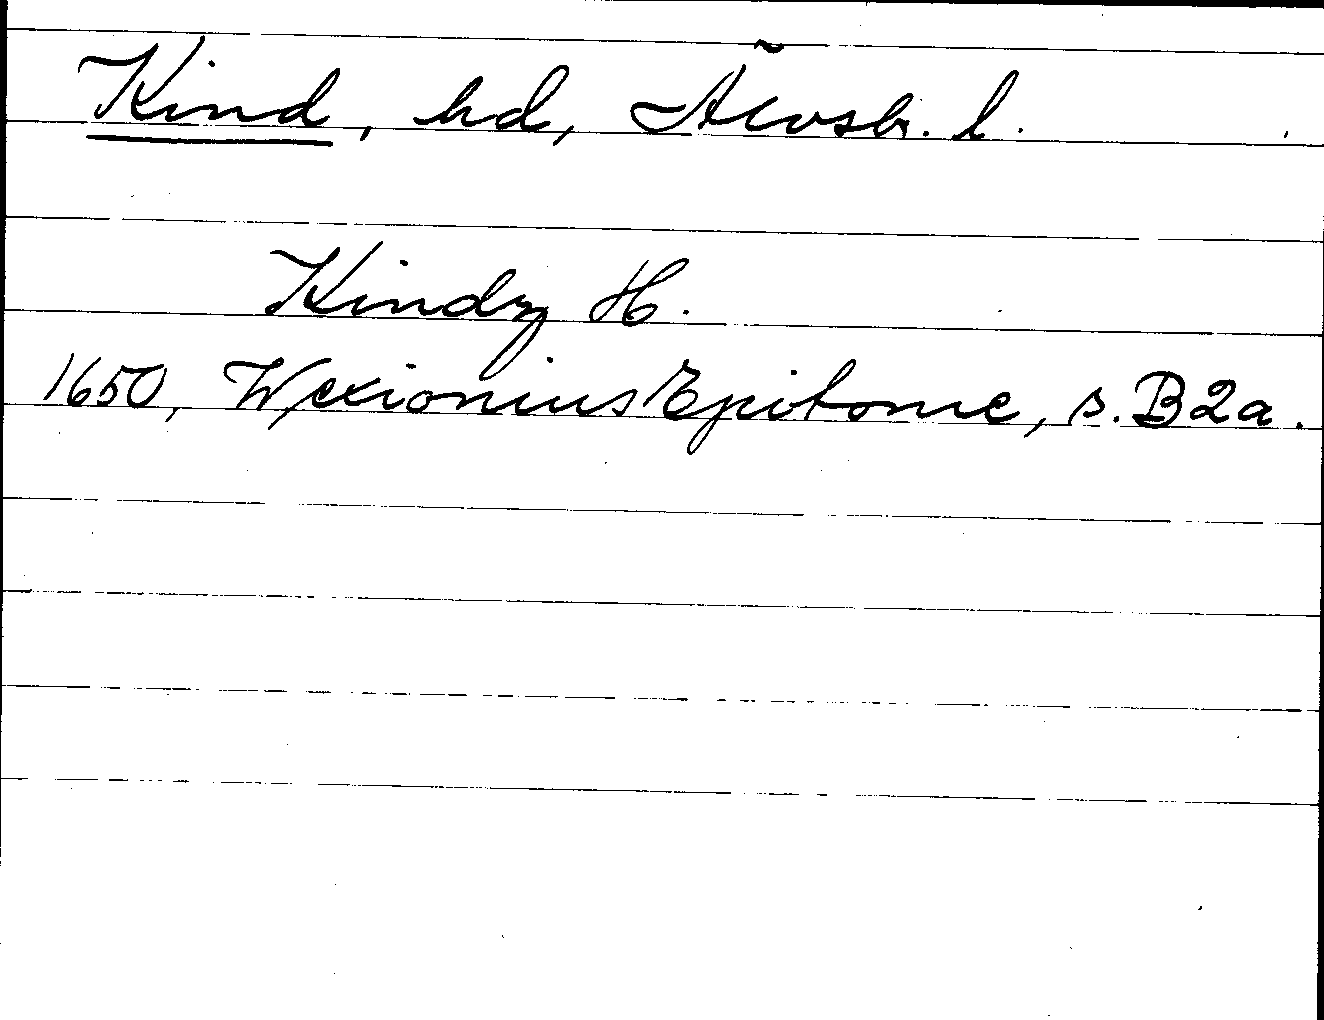 Kind, hd, Älvsb. l.
Kindz H.
1650, Wexionius Epitome, s. B2a.